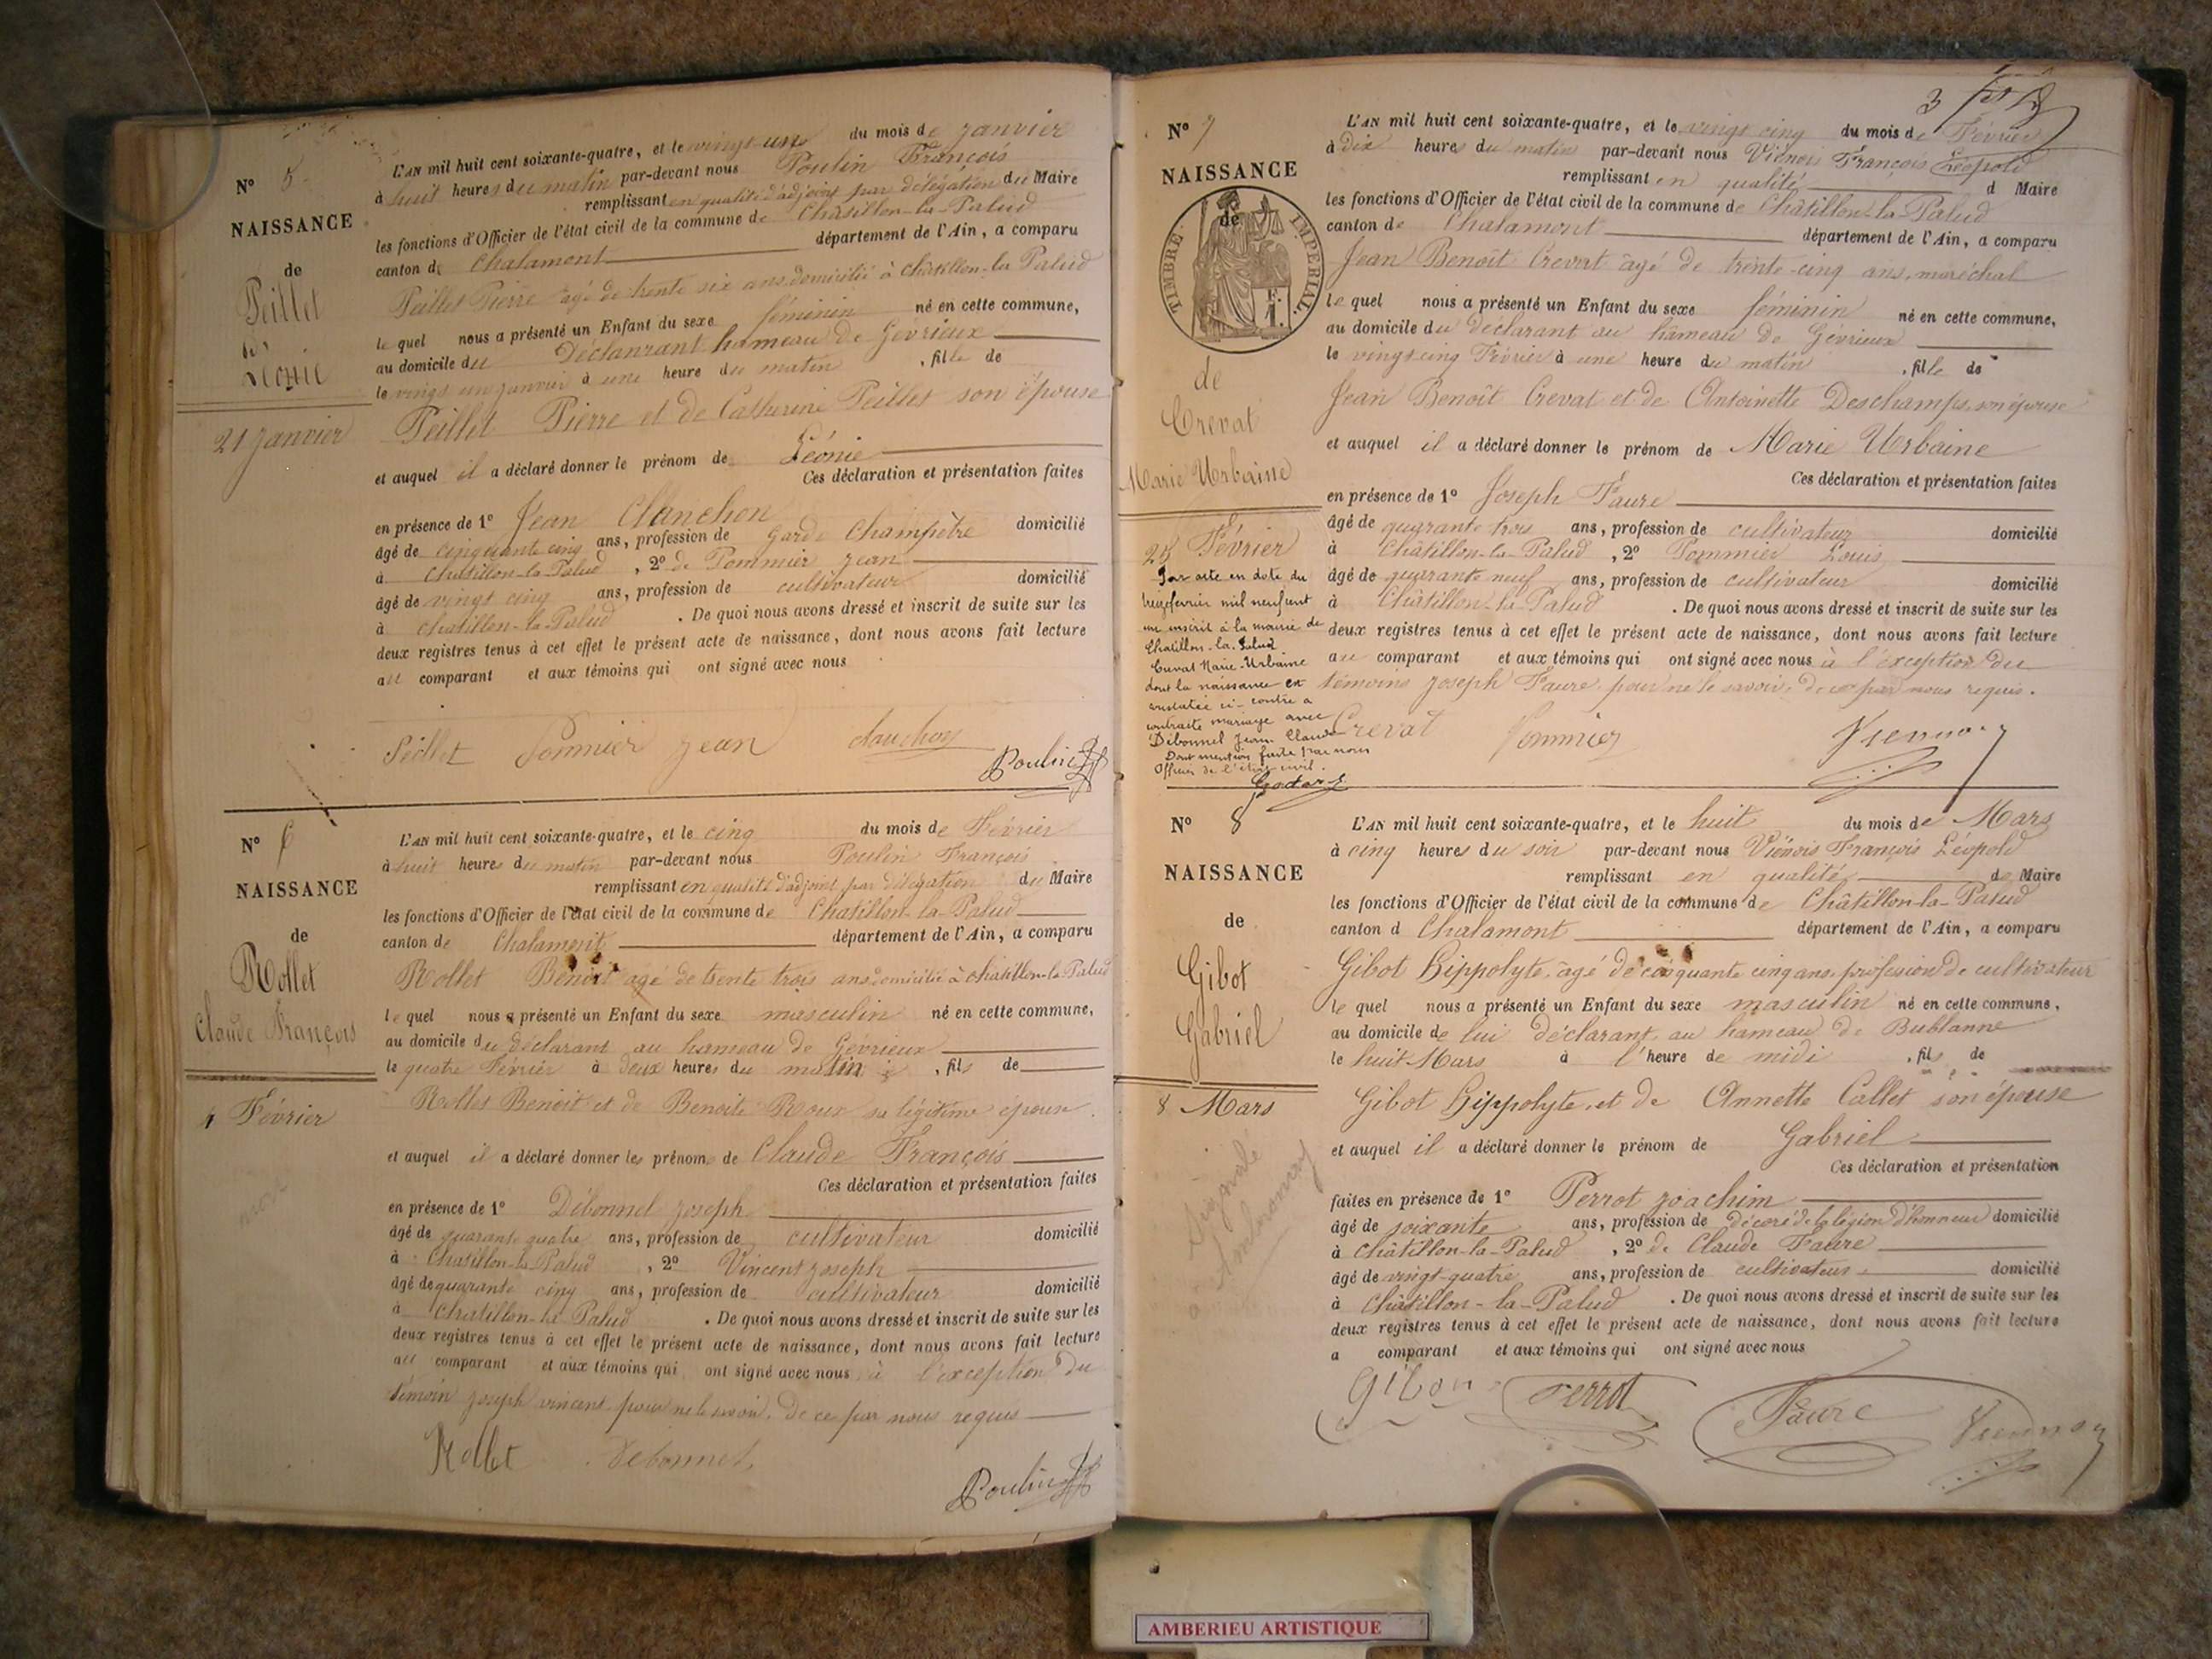 N° 5
NAISSANCE
de
Peillet
Léonie
21 Janvier
L'AN mil huit cent soixante-quatre, et le vingt-un du mois de Janvier
à huit heures du matin par-devant nous Poulin François
remplissant en qualité d'adjoint par délégation du Maire
les fonctions d'Officier de l'état civil de la commune de Châtillon-la-Palud
canton de Chalamont département de l'Ain, a comparu
Peillet Pierre âgé de trente six ans domicilié à Châtillon-la Palud
le quel nous a présenté un Enfant du sexe féminin né en cette commune,
au domicile du Déclanrant hameau de Gévrieux
le vingt un janvier à une heure du matin , fille de
Peillet Pierre et de Catherine Peillet son épouse
et auquel il a déclaré donner le prénom de Léonie
Ces déclaration et présentation faites
en présence de 1° Jean Clanchon
âgé de cinquante cinq ans, profession de Garde Champêtre domicilié
à Châtillon-la-Palud , 2° de Pommier Jean
âgé de vingt cinq ans, profession de cultivateur domicilié
à Chatillon-la-Palud . De quoi nous avons dressé et inscrit de suite sur les
deux registres tenus à cet effet le présent acte de naissance, dont nous avons fait lecture
au comparant et aux témoins qui ont signé avec nous
Peillet Pommier Jean Clanchon Poulin
N° 6
NAISSANCE
de
Rollet
Claude François
4 Février
mort
L'AN mil huit cent soixante-quatre, et le cinq du mois de Février
à huit heures du matin par-devant nous Poulin François
remplissant en qualité d'adjoint par délégation du Maire
les fonctions d'Officier de l'état civil de la commune de Chatillon-la-Palud
canton de Chalamont département de l'Ain, a comparu
Rollet Benoit agé de trente trois ans domicilié à chatillon-la-Palud
le quel nous a présenté un Enfant du sexe masculin né en cette commune,
au domicile du déclarant au hameau de Gévrieux
le quatre Février à deux heures du matin , fils de
Rollet Benoit et de Benoite Roux sa légitime épouse.
et auquel il a déclaré donner les prénoms de Claude François
Ces déclaration et présentation faites
en présence de 1° Débonnel Joseph
âgé de quarante quatre ans, profession de cultivateur domicilié
à Chatillon-la-Palud , 2° Vincent Joseph
âgé de quarante cinq ans, profession de cultivateur domicilié
à Chatillon-la Palud . De quoi nous avons dressé et inscrit de suite sur les
deux registres tenus à cet effet le présent acte de naissance, dont nous avons fait lecture
au comparant et aux témoins qui ont signé avec nous à l'exception du
témoin Joseph vincent pour ne le savoir. De ce par nous requis
Rollet Debonnel Poulin
3
N° 7
NAISSANCE
de
TIMBRE IMPERIAL
de
Crevat
Marie Urbaine
25 Février
Par acte en date du
treize février mil neuf cent
un inscrit à la mairie de
Chatillon-la-Palud
Crevat Marie-Urbaine
dont la naissance est
constatée ci-contre a
contracté mariage avec
Débonnel Jean Claude
Dont mention faite par nous
Officier de l'état civil.
L'AN mil huit cent soixante-quatre, et le vingt cinq du mois de Février
à Dix heures du matin par-devant nous Viénois François Léopold
remplissant en qualité d Maire
les fonctions d'Officier de l'état civil de la commune de Châtillon-la-Palud
canton de Chalamont département de l'Ain, a comparu
Jean Benoît Crevat âgé de trente-cinq ans, maréchal
le quel nous a présenté un Enfant du sexe féminin né en cette commune,
au domicile du déclarant au hameau de Gévrieux
le vingt cinq Février à une heure du matin , fille de
Jean Benoît Crevat et de Antoinette Deschamps, son épouse
et auquel il a déclaré donner le prénom de Marie Urbaine
Ces déclaration et présentation faites
en présence de 1° Joseph Faure
âgé de quarante trois ans, profession de cultivateur domicilié
à Châtillon-la Palud , 2° Pommier Louis
âgé de quarante neuf ans, profession de cultivateur domicilié
à Châtillon-la-Palud . De quoi nous avons dressé et inscrit de suite sur les
deux registres tenus à cet effet le présent acte de naissance, dont nous avons fait lecture
au comparant et aux témoins qui ont signé avec nous à l'exception du
témoins Joseph Faure, pour ne le savoir. De ce par nous requis.
Crevat Pommier
N° 8
NAISSANCE
de
Gibot
Gabriel
8 Mars
L'AN mil huit cent soixante-quatre, et le huit du mois de Mars
à cinq heures du soir par-devant nous Viénois François Léopold
remplissant en qualité de Maire
les fonctions d'Officier de l'état civil de la commune de Châtillon-la-Palud
canton d Chalamont département de l'Ain, a comparu
Gibot Hippolyte, âgé de cinquante cinq ans, profession de cultivateur
le quel nous a présenté un Enfant du sexe masculin né en cette commune,
au domicile de lui déclarant, au hameau de Bublanne
le huit Mars à l'heure de midi , fils de
Gibot Hippolyte, et de Annette Callet son épouse
et auquel il a déclaré donner le prénom de Gabriel
Ces déclaration et présentation
faites en présence de 1° Perrot Joachim
âgé de soixante ans, profession de décoré de la légion d'honneur domicilié
à Châtillon-la-Palud , 2° de Claude Faure
âgé de vingt-quatre ans, profession de cultivateur domicilié
à Châtillon-la-Palud . De quoi nous avons dressé et inscrit de suite sur les
deux registres tenus à cet effet le présent acte de naissance, dont nous avons fait lecture
a comparant et aux témoins qui ont signé avec nous
Perrot Faure
AMBERIEU ARTISTIQUE